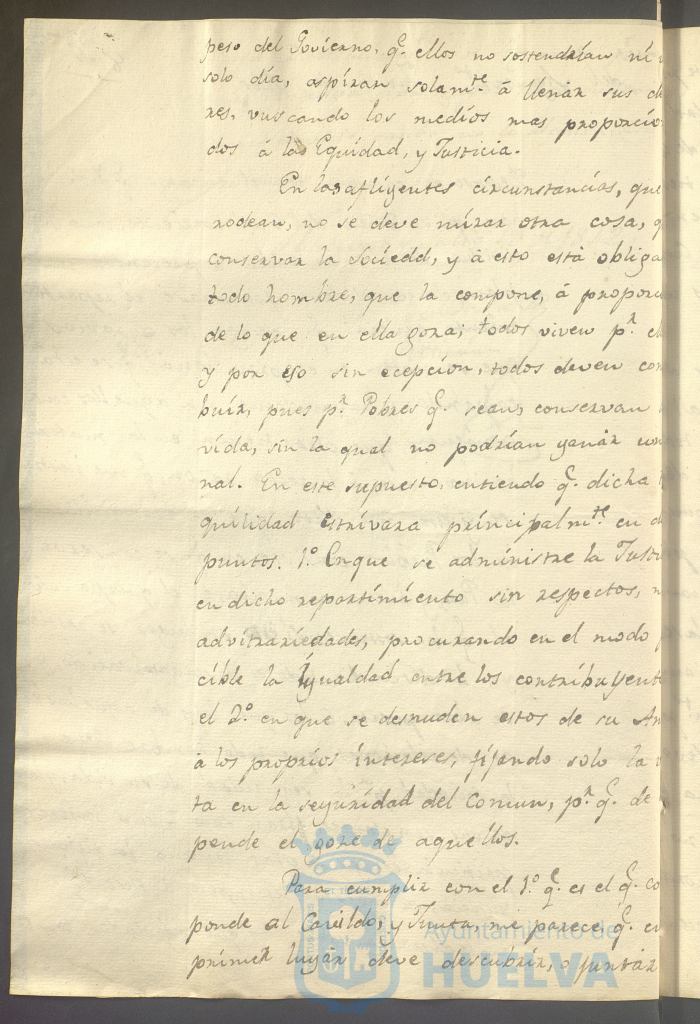 peso del Govierno, q.e ellos no sostendrían ni
solo día, aspíran solam.te á llenár sus de
res, vuscando los medíos mas proporcío
dos á las Equídad, y Justicia.
En las afligentes círcunstancías, que
rodean, no se deve mirar otra cosa, q
conservar la Sociedd, y á esto está obliga
todo hombre, que la compone, á proporc
de lo que en ella goza; todos viven p.r el
y por eso sin ecepcíon, todos deven con
buír, pues p.r Pobres q.e sean, conservan
vída, sin la qual no podrían ganár
nal. En este supuesto, entiendo q.e dicha
quílidad estrívara príncipalm.te en d
puntos. 1.º Enque se adminístre la Justí
en dicho repartímíento sin respectos,
advitraríedades, procurando en el modo p
cíble la Ígualdad entre los contríbuyent
el 2.º en que se desnuden estos de su Am
á los propríos íntereses, fíjando solo la v
ta en la segurídad del Comun, p.r q.e de
pende el goze de aquellos.
Para cumplír con el 1.º q.e es el q.e co
ponde al Cavíldo, y Junta, me parece, q.e en
prímer lugár deve descubrír, o juntár
Ayuntamiento de
HUELVA